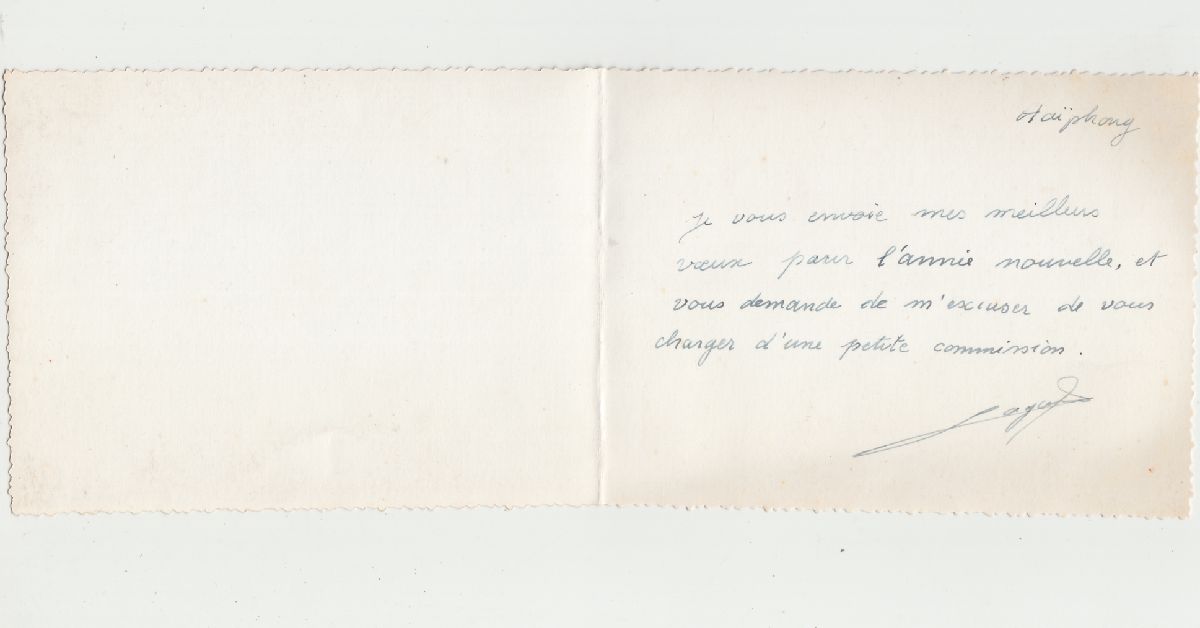 Haïphong
Je vous envoie mes meilleurs
vœux pour l'année nouvelle, et
vous demande de m'excuser de vous
charger d'une petite commission.